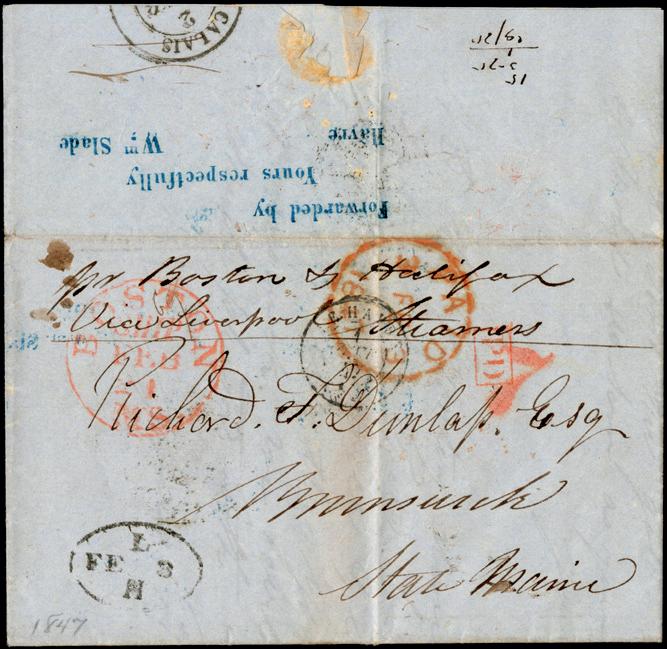 CALAIS
Forwarded by
Yours respectfully
Wm Slade
Havre
pr Boston & Halifax
Via Liverpool Steamers
BOSTON
FEB
Richard. T. Dunlap, Esq
Brunswick
State Maine
PD
L
FE 3
H
1847